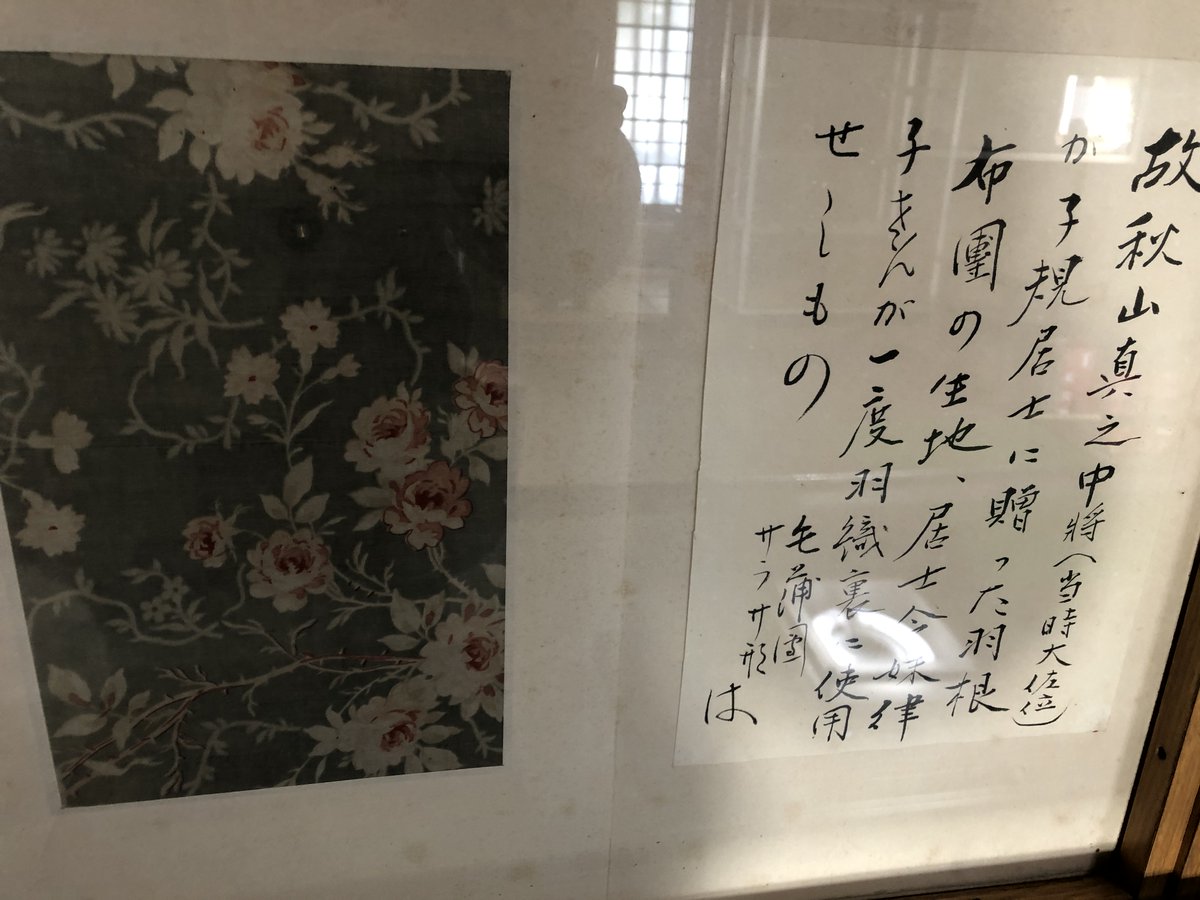 故秋山真之中將（当時大佐位）
が子規居士に贈った羽根
布團の生地、居士令妹律
子さんが一度羽織裏に使用
せしもの
毛蒲團
サラサ形
は